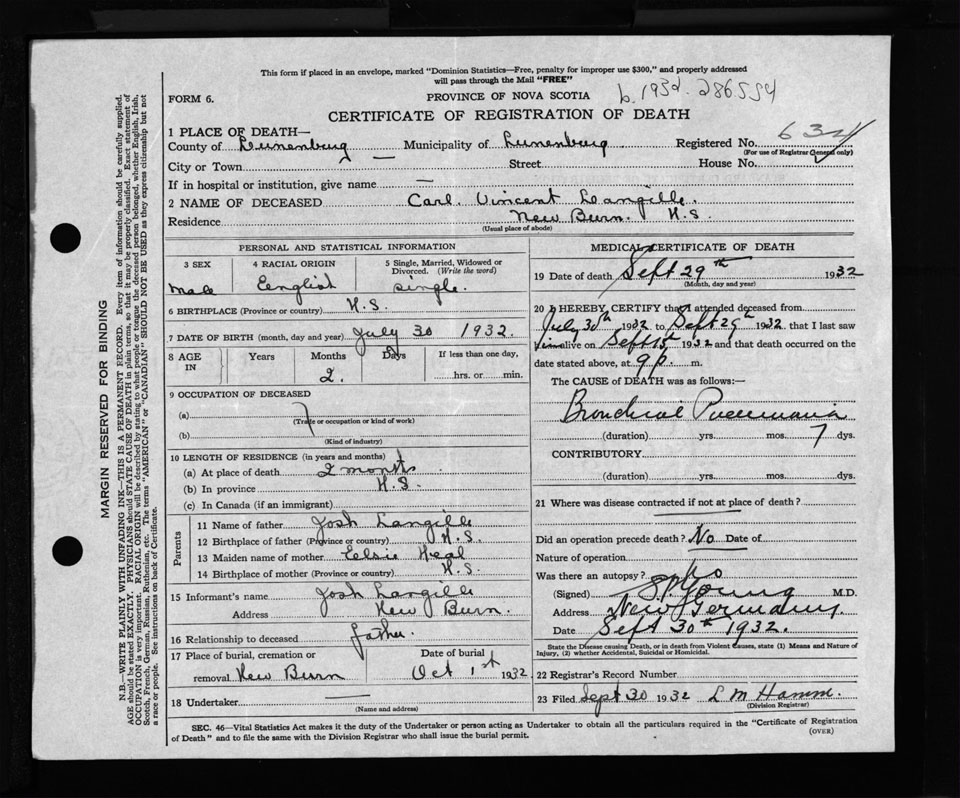 This form if placed in an envelope, marked "Dominion Statistics—Free, penalty for improper use $300," and properly addressed
will pass through the Mail "FREE"
b. 1932. 286554
FORM 6.
PROVINCE OF NOVA SCOTIA
CERTIFICATE OF REGISTRATION OF DEATH
634
1 PLACE OF DEATH—
County of Lunenburg Municipality of Lunenburg Registered No.
(For use of Registrar General only)
City or Town — Street House No.
If in hospital or institution, give name —
2 NAME OF DECEASED Carl Vincent Langille.
Residence New Burn. N.S.
(Usual place of abode)
PERSONAL AND STATISTICAL INFORMATION
3 SEX 4 RACIAL ORIGIN 5 Single, Married, Widowed or
Divorced. (Write the word)
Male English single.
6 BIRTHPLACE (Province or country) N.S.
7 DATE OF BIRTH (month, day and year) July 30 1932.
8 AGE IN Years Months Days If less than one day,
2. hrs. or min.
9 OCCUPATION OF DECEASED
(a)
(Trade or occupation or kind of work)
(b)
(Kind of industry)
10 LENGTH OF RESIDENCE (in years and months)
(a) At place of death 2 months
(b) In province N.S.
(c) In Canada (if an immigrant)
Parents
11 Name of father Josh Langille
12 Birthplace of father (Province or country) N.S.
13 Maiden name of mother Eelsie Veal
14 Birthplace of mother (Province or country) N.S.
15 Informant's name Josh Langille
Address New Burn.
16 Relationship to deceased father.
17 Place of burial, cremation or Date of burial
removal New Burn Oct 1st 1932
18 Undertaker —
(Name and address)
MEDICAL CERTIFICATE OF DEATH
19 Date of death Sept 29th 1932
(Month, day and year)
20 I HEREBY CERTIFY that I attended deceased from
July 30th 1932 to Sept 29th 1932. that I last saw
him alive on Sept 15 1932 and that death occurred on the
date stated above, at 9 p. m.
The CAUSE of DEATH was as follows:—
Bronchial Pneumonia
(duration) yrs. mos. 7 dys.
CONTRIBUTORY
(duration) yrs. mos. dys.
21 Where was disease contracted if not at place of death?
Did an operation precede death? No Date of
Nature of operation
Was there an autopsy? No
(Signed) Young M.D.
Address New Germany
Date Sept 30th 1932.
State the Disease causing Death, or in death from Violent Causes, state (1) Means and Nature of
Injury, (2) whether Accidental, Suicidal or Homicidal.
22 Registrar's Record Number
23 Filed Sept 30 1932 L M Hamm.
(Division Registrar)
SEC. 46—Vital Statistics Act makes it the duty of the Undertaker or person acting as Undertaker to obtain all the particulars required in the "Certificate of Registration
of Death" and to file the same with the Division Registrar who shall issue the burial permit.
(OVER)
MARGIN RESERVED FOR BINDING
N.B.—WRITE PLAINLY WITH UNFADING INK—THIS IS A PERMANENT RECORD. Every item of information should be carefully supplied.
AGE should be stated EXACTLY. PHYSICIANS should STATE CAUSE OF DEATH in plain terms, so that it may be properly classified. Exact statement of
OCCUPATION is very important. RACIAL ORIGIN will be described by stating to what people or tongue the deceased person belonged, whether English, Irish,
Scotch, French, German, Russian, Ruthenian, etc. The terms "AMERICAN" or "CANADIAN" SHOULD NOT BE USED as they express citizenship but not
a race or people. See instructions on back of Certificate.